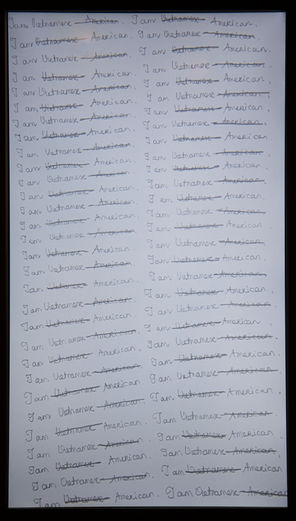 I am Vietnamese American. I am Vietnamese American.
I am Vietnamese American. I am Vietnamese American.
I am Vietnamese American. I am Vietnamese American.
I am Vietnamese American. I am Vietnamese American.
I am Vietnamese American. I am Vietnamese American.
I am Vietnamese American. I am Vietnamese American.
I am Vietnamese American. I am Vietnamese American.
I am Vietnamese American. I am Vietnamese American.
I am Vietnamese American. I am Vietnamese American.
I am Vietnamese American. I am Vietnamese American.
I am Vietnamese American. I am Vietnamese American.
I am Vietnamese American. I am Vietnamese American.
I am Vietnamese American. I am Vietnamese American.
I am Vietnamese American. I am Vietnamese American.
I am Vietnamese American. I am Vietnamese American.
I am Vietnamese American. I am Vietnamese American.
I am Vietnamese American. I am Vietnamese American.
I am Vietnamese American. I am Vietnamese American.
I am Vietnamese American. I am Vietnamese American.
I am Vietnamese American. I am Vietnamese American.
I am Vietnamese American. I am Vietnamese American.
I am Vietnamese American. I am Vietnamese American.
I am Vietnamese American. I am Vietnamese American.
I am Vietnamese American. I am Vietnamese American.
I am Vietnamese American. I am Vietnamese American.
I am Vietnamese American. I am Vietnamese American.
I am Vietnamese American. I am Vietnamese American.
I am Vietnamese American. I am Vietnamese American.
I am Vietnamese American. I am Vietnamese American.